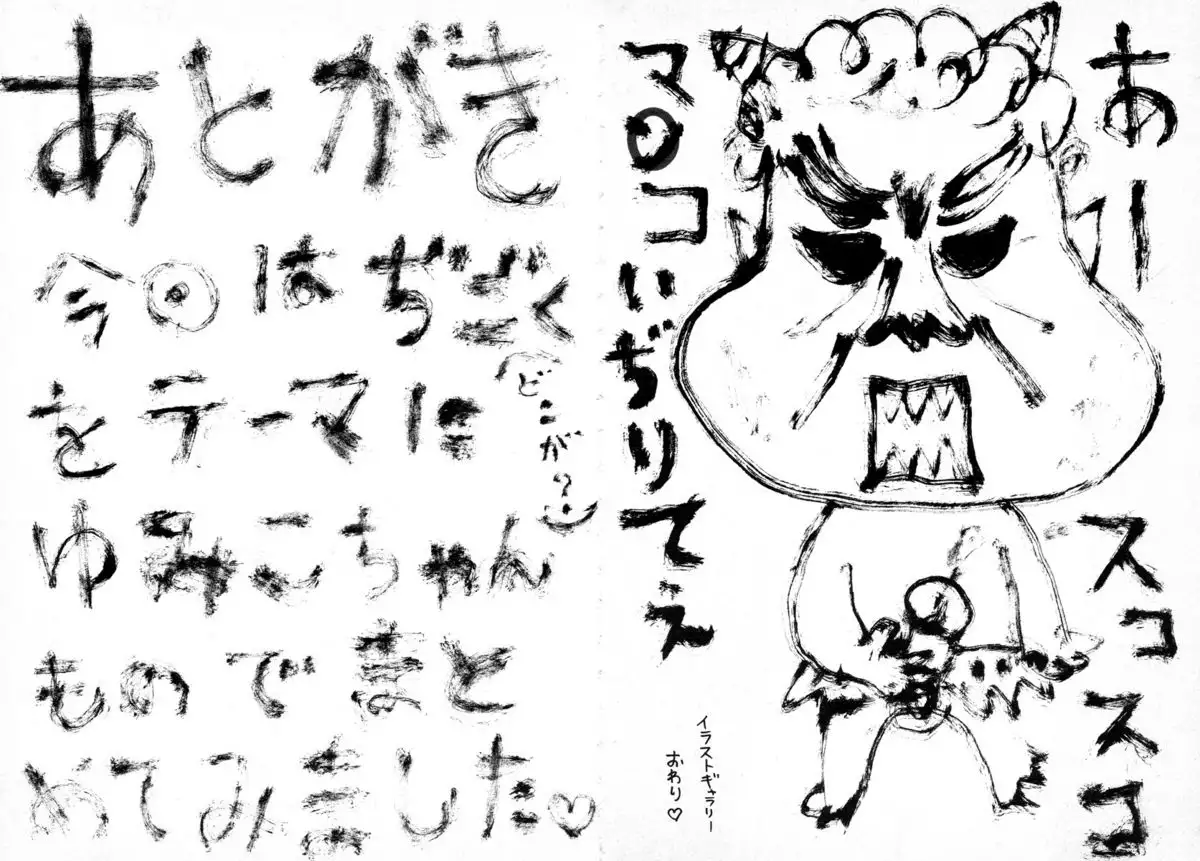 あー
マ○コいぢりてぇ
スコスコ
イラストギャラリー
おわり♡
あとがき
今回はぢごく
をテーマに
(どこが?)
ゆみこちゃん
ものでまと
めてみました♡